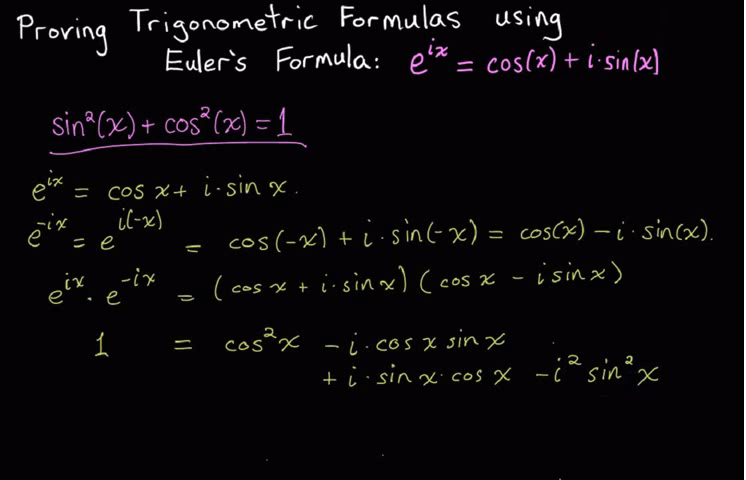 Proving Trigonometric Formulas using
Euler's Formula: e^{ix} = cos(x) + i·sin(x)
sin²(x) + cos²(x) = 1
e^{ix} = cos x + i·sin x.
e^{-ix} = e^{i(-x)} = cos(-x) + i·sin(-x) = cos(x) - i·sin(x).
e^{ix}·e^{-ix} = (cos x + i·sin x)(cos x - i sin x)
1 = cos²x - i·cos x sin x
+ i·sin x·cos x - i² sin² x